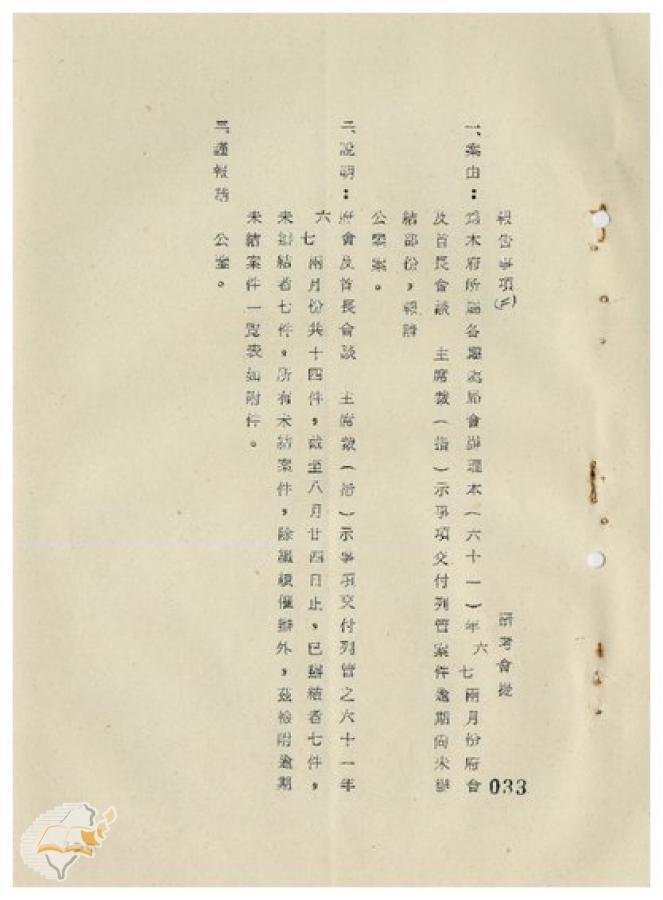 報告事項㈡
研考會提
一、案由：為本府所屬各廳處局會辦理本（六十一）年六七兩月份府會
及首長會談　主席裁（指）示事項交付列管案件逾期尚未辦
結部份，報請
公鑒案。
二、說明：府會及首長會談　主席裁（指）示事項交付列管之六十一年
六七兩月份共十四件，截至八月廿四日止，已辦結者七件，
未辦結者七件。所有未結案件，除繼續催辦外，茲檢附逾期
未結案件一覽表如附件。
三、謹報請　公鑒。
033